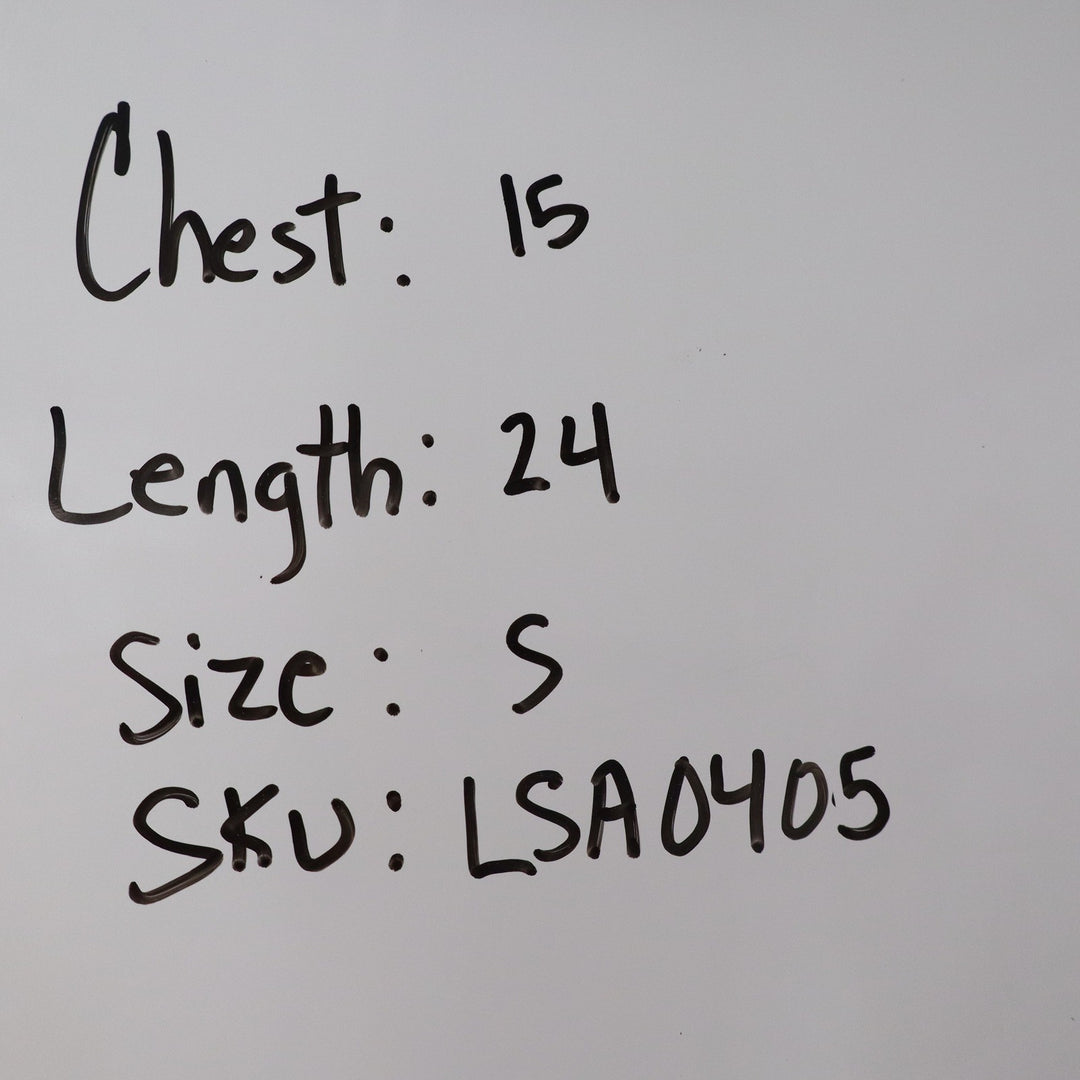 Chest: 15
Length: 24
Size: S
SKU: LSA0405